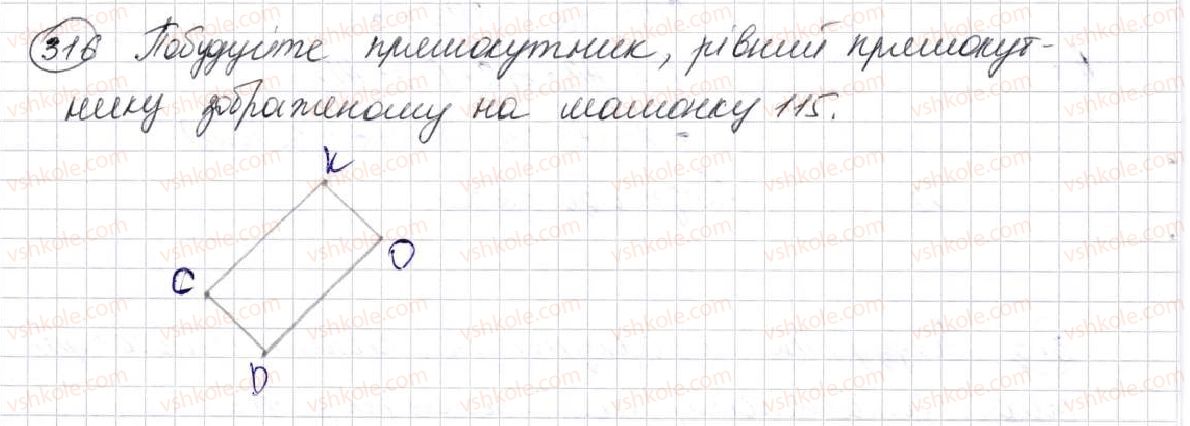 316 Побудуйте прямокутник, рівний прямокут-
нику зображеному на малюнку 115.
K
O
C
D
vshkole.com